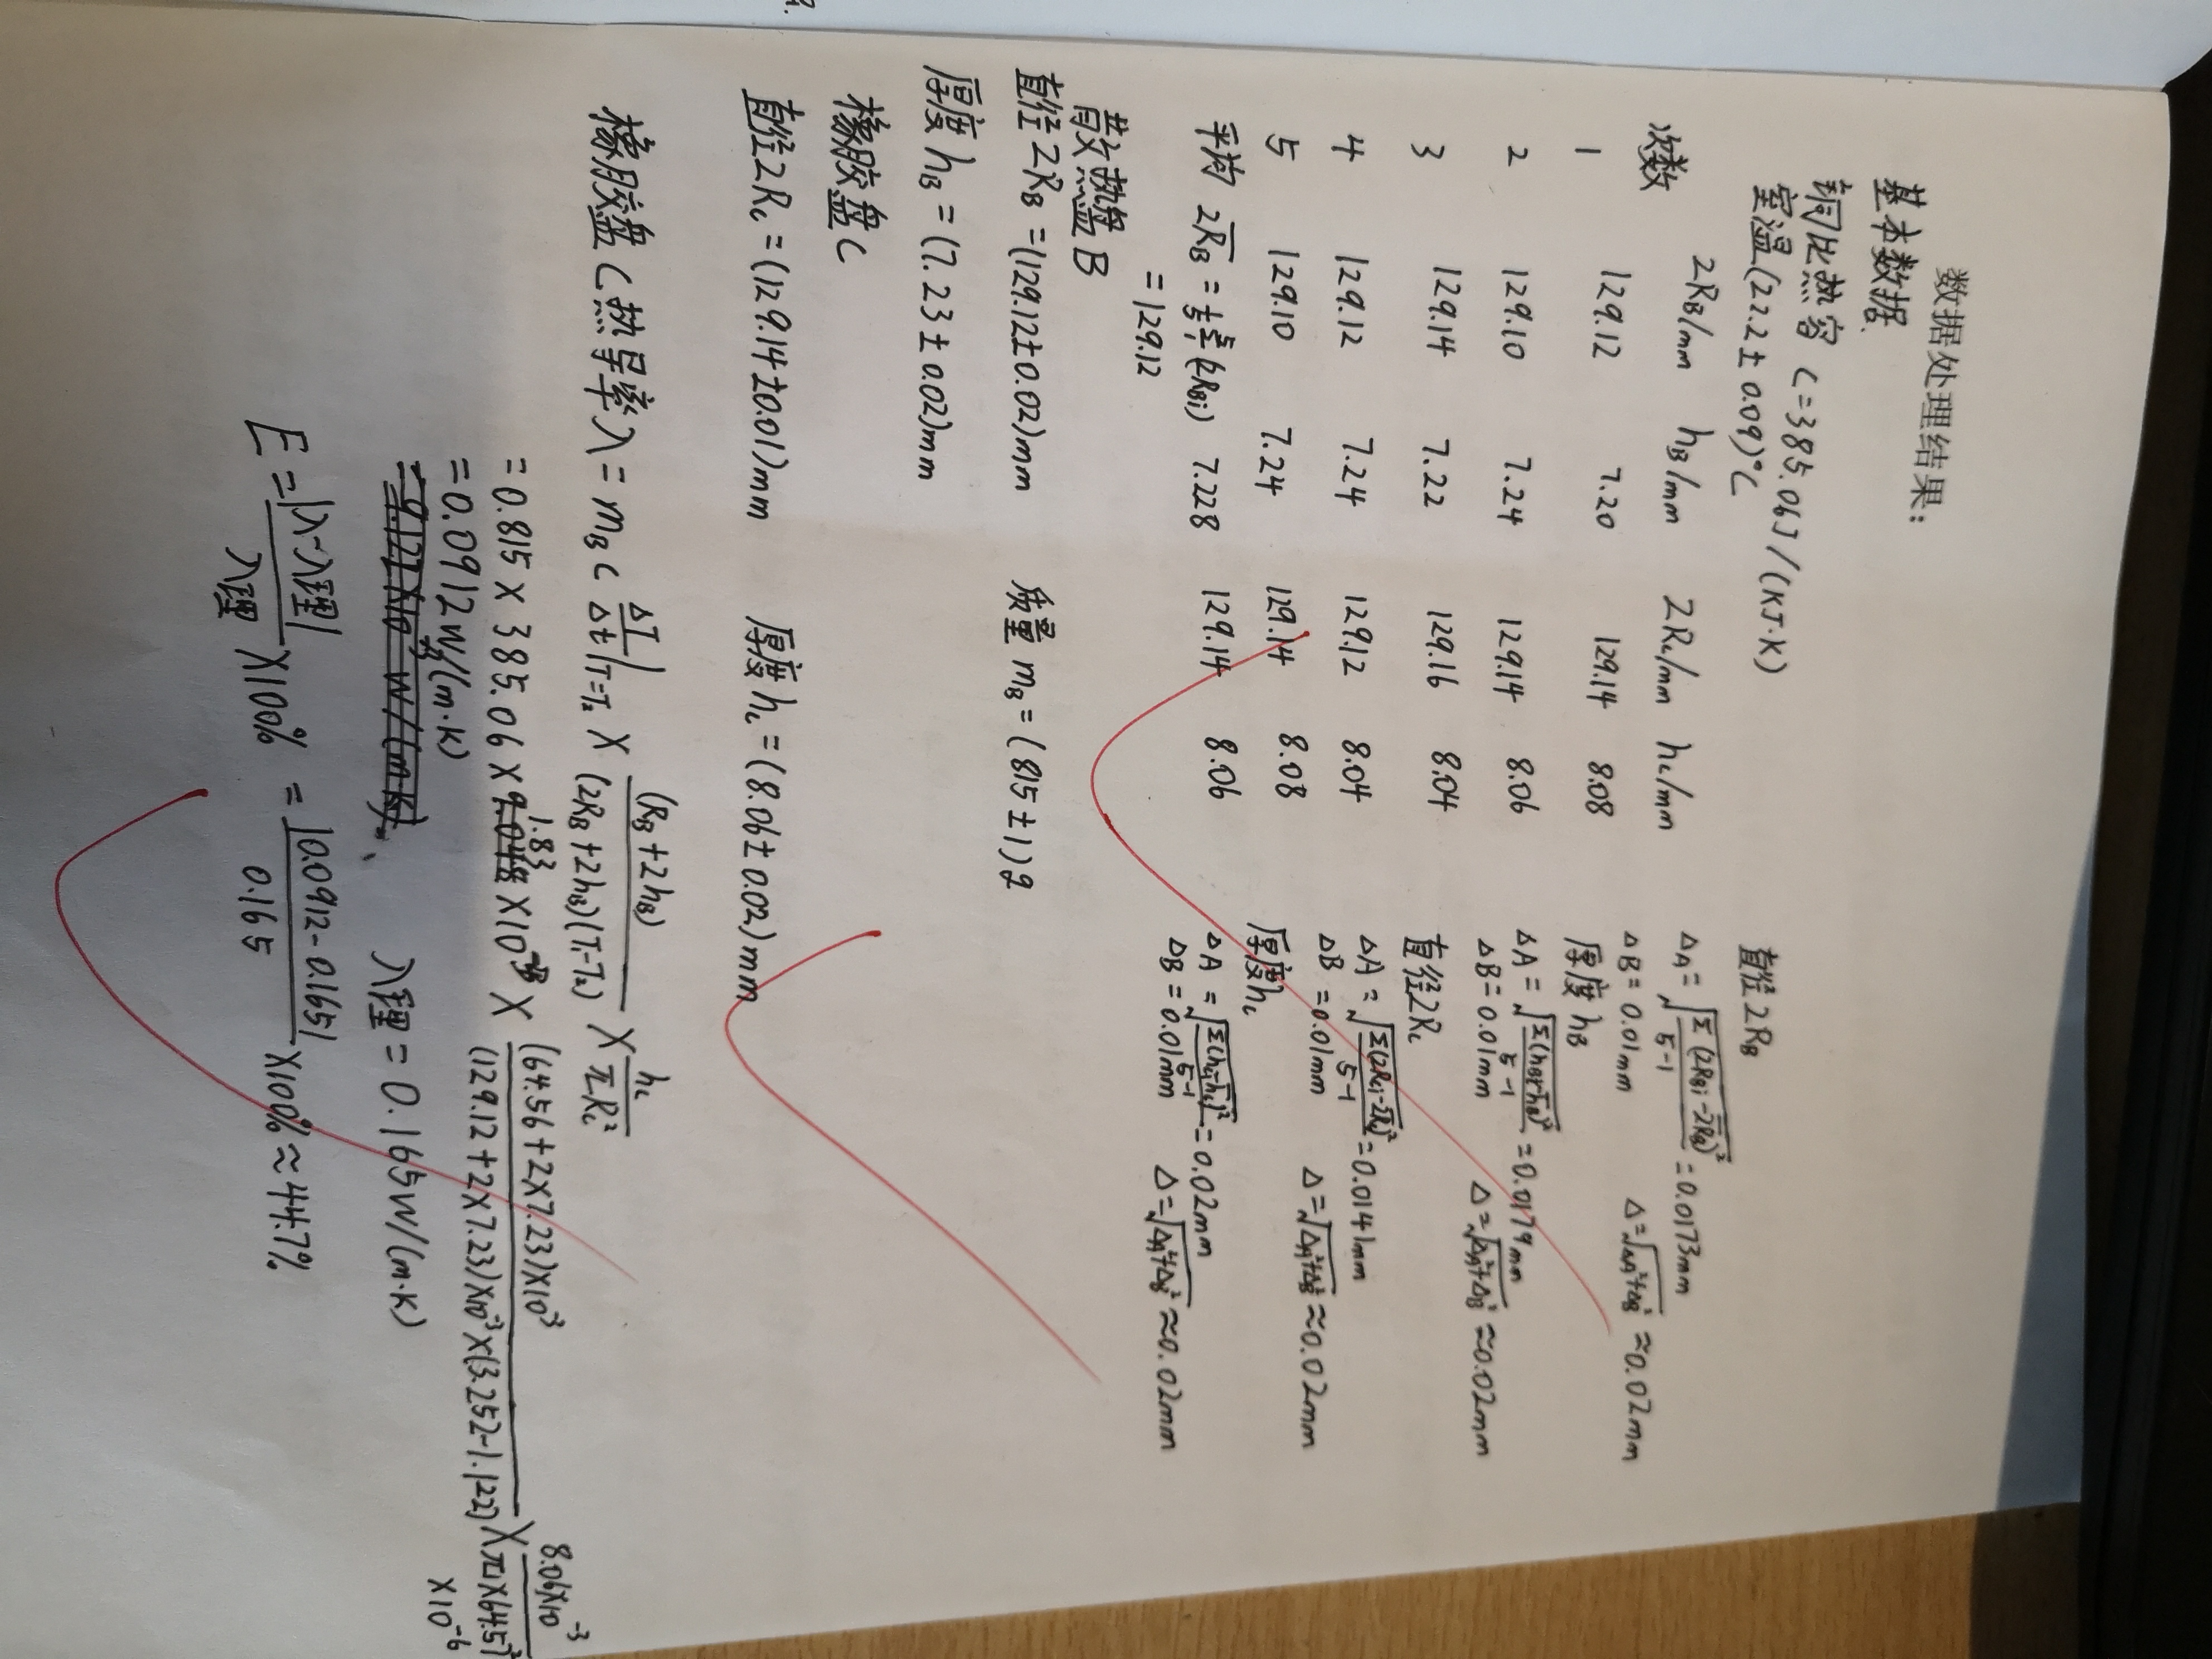 数据处理结果：
基本数据
铜比热容 C=385.06J/(KJ·K)
室温(22.2±0.09)°C
次数 2RB/mm hB/mm 2Rc/mm hc/mm
1 129.12 7.20 129.14 8.08
2 129.10 7.24 129.14 8.06
3 129.14 7.22 129.16 8.04
4 129.12 7.24 129.12 8.04
5 129.10 7.24 129.14 8.08
平均 2RB = 1/5 Σ(2RBi) 7.228 129.14 8.06
=129.12
直径2RB
ΔA=√(Σ(2RBi-2RB)²/(5-1)) =0.0173mm
ΔB=0.01mm Δ=√(ΔA²+ΔB²) ≈0.02mm
厚度hB
ΔA=√(Σ(hBi-hB)²/(5-1)) =0.0179mm
ΔB=0.01mm Δ=√(ΔA²+ΔB²) ≈0.02mm
直径2Rc
ΔA=√(Σ(2Rci-2Rc)²/(5-1)) =0.0141mm
ΔB=0.01mm Δ=√(ΔA²+ΔB²) ≈0.02mm
厚度hc
ΔA=√(Σ(hci-hc)²/(5-1)) =0.02mm
ΔB=0.01mm Δ=√(ΔA²+ΔB²) ≈0.02mm
散热盘B
直径2RB=(129.12±0.02)mm 质量mB=(815±1)g
厚度hB=(7.23±0.02)mm
橡胶盘C
直径2Rc=(129.14±0.01)mm 厚度hc=(8.06±0.02)mm
橡胶盘C热导率λ=mBC ΔT/Δt|T=T2 × (RB+2hB)/(2RB+2hB)(T1-T2) × hc/πRc²
=0.815×385.06×1.83×10⁻³× (64.56+2×7.23)×10⁻³/(129.12+2×7.23)×10⁻³×(3.252-1.122) × 8.06×10⁻³/π×64.57²×10⁻⁶
=0.0912W/(m·K)
λ理=0.165W/(m·K)
E=|λ-λ理|/λ理 ×100% = |0.0912-0.165|/0.165 ×100%≈44.7%